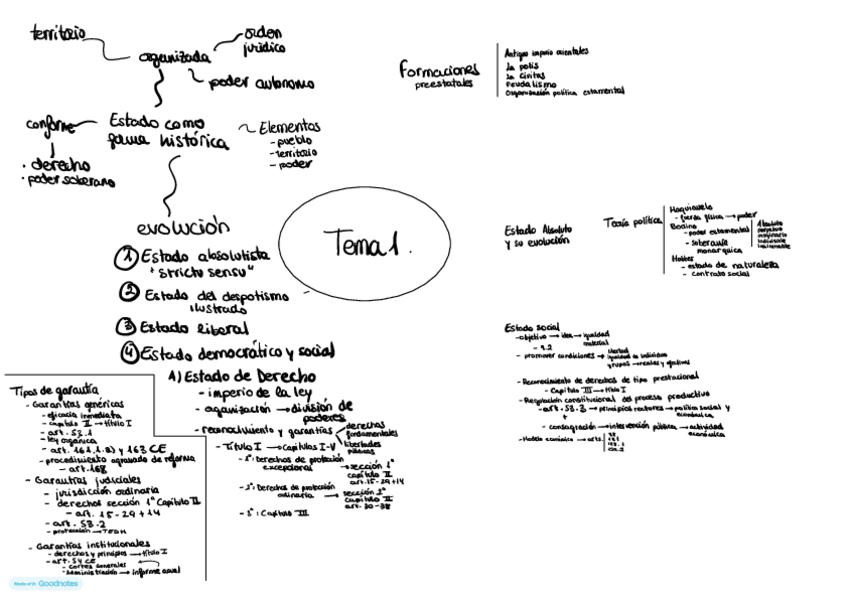 territorio
orden
jurídico
organizada
poder autónomo
conforme
derecho
poder soberano
Estado como
forma histórica
Elementos
- pueblo
- territorio
- poder
evolución
1 Estado absolutista
"strictu sensu"
2 Estado del despotismo
ilustrado
3 Estado liberal
4 Estado democrático y social
Tema 1.
Formaciones
preestatales
Antiguo imperio orientales
la polis
la civitas
Feudalismo
Organización política estamental
Estado Absoluto
y su evolución
Teoría política
Maquiavelo
- fuerza física → poder
Bodino
- poder estamental
- soberanía
monárquica
Absoluta
perpetua
indivisible
inalienable
Hobbes
- estado de naturaleza
- contrato social
A) Estado de Derecho
- imperio de la ley
- organización → división de
poderes
- reconocimiento y garantías
derechos
fundamentales
libertades
públicas
- Título I → Capítulos I-V
- 1º: Derechos de protección
excepcional → sección 1ª
capítulo II
art. 15-29 + 14
- 2º: Derechos de protección
ordinaria → sección 2ª
Capítulo II
art. 30-38
- 3º: Capítulo III
Tipos de garantía
- Garantías genéricas
- eficacia inmediata
- capítulo II → título I
- art. 53.1
- ley orgánica
- art. 161.1.a) y 163 CE
- procedimiento agravado de reforma
- art. 168
- Garantías judiciales
- jurisdicción ordinaria
- derechos sección 1ª Capítulo II
- art. 15-29 + 14
- art. 53.2
- protección → TEDH
- Garantías institucionales
- derechos y principios → título I
- art. 54 CE
- Cortes Generales
- Administración → informe anual
Estado social
- objetivo → idea → igualdad
material
- 9.2
- promover condiciones → libertad
igualdad de individuos
grupos → reales y efectivas
- Reconocimiento de derechos de tipo prestacional
- Capítulo III → título I
- Regulación constitucional del proceso productivo
- art. 53.3 → principios rectores → política social y
económica
+
- consagración → intervención pública → actividad
económica
- Modelo económico → arts.
Made with Goodnotes